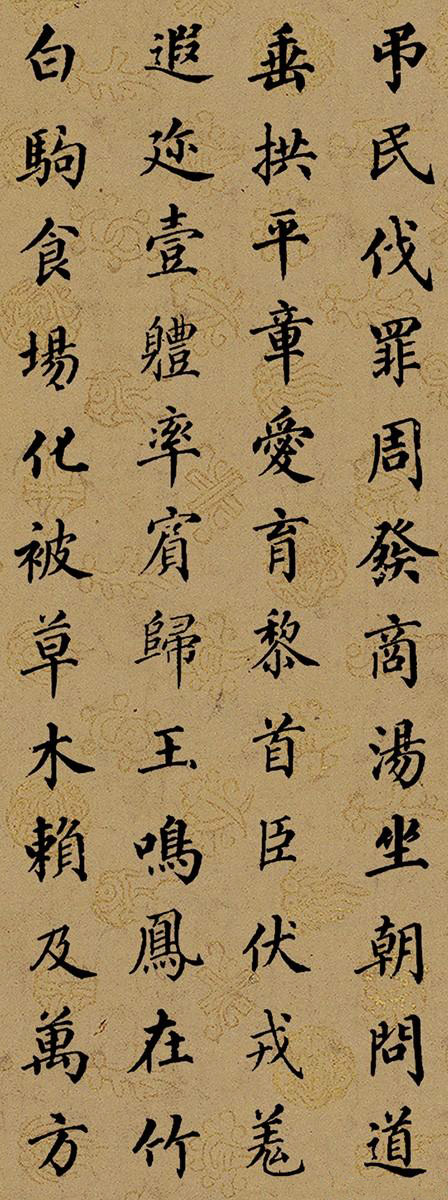 弔民伐罪周發商湯坐朝問道
垂拱平章愛育黎首臣伏戎羌
遐迩壹軆率賓歸王鳴鳳在竹
白駒食場化被草木賴及萬方